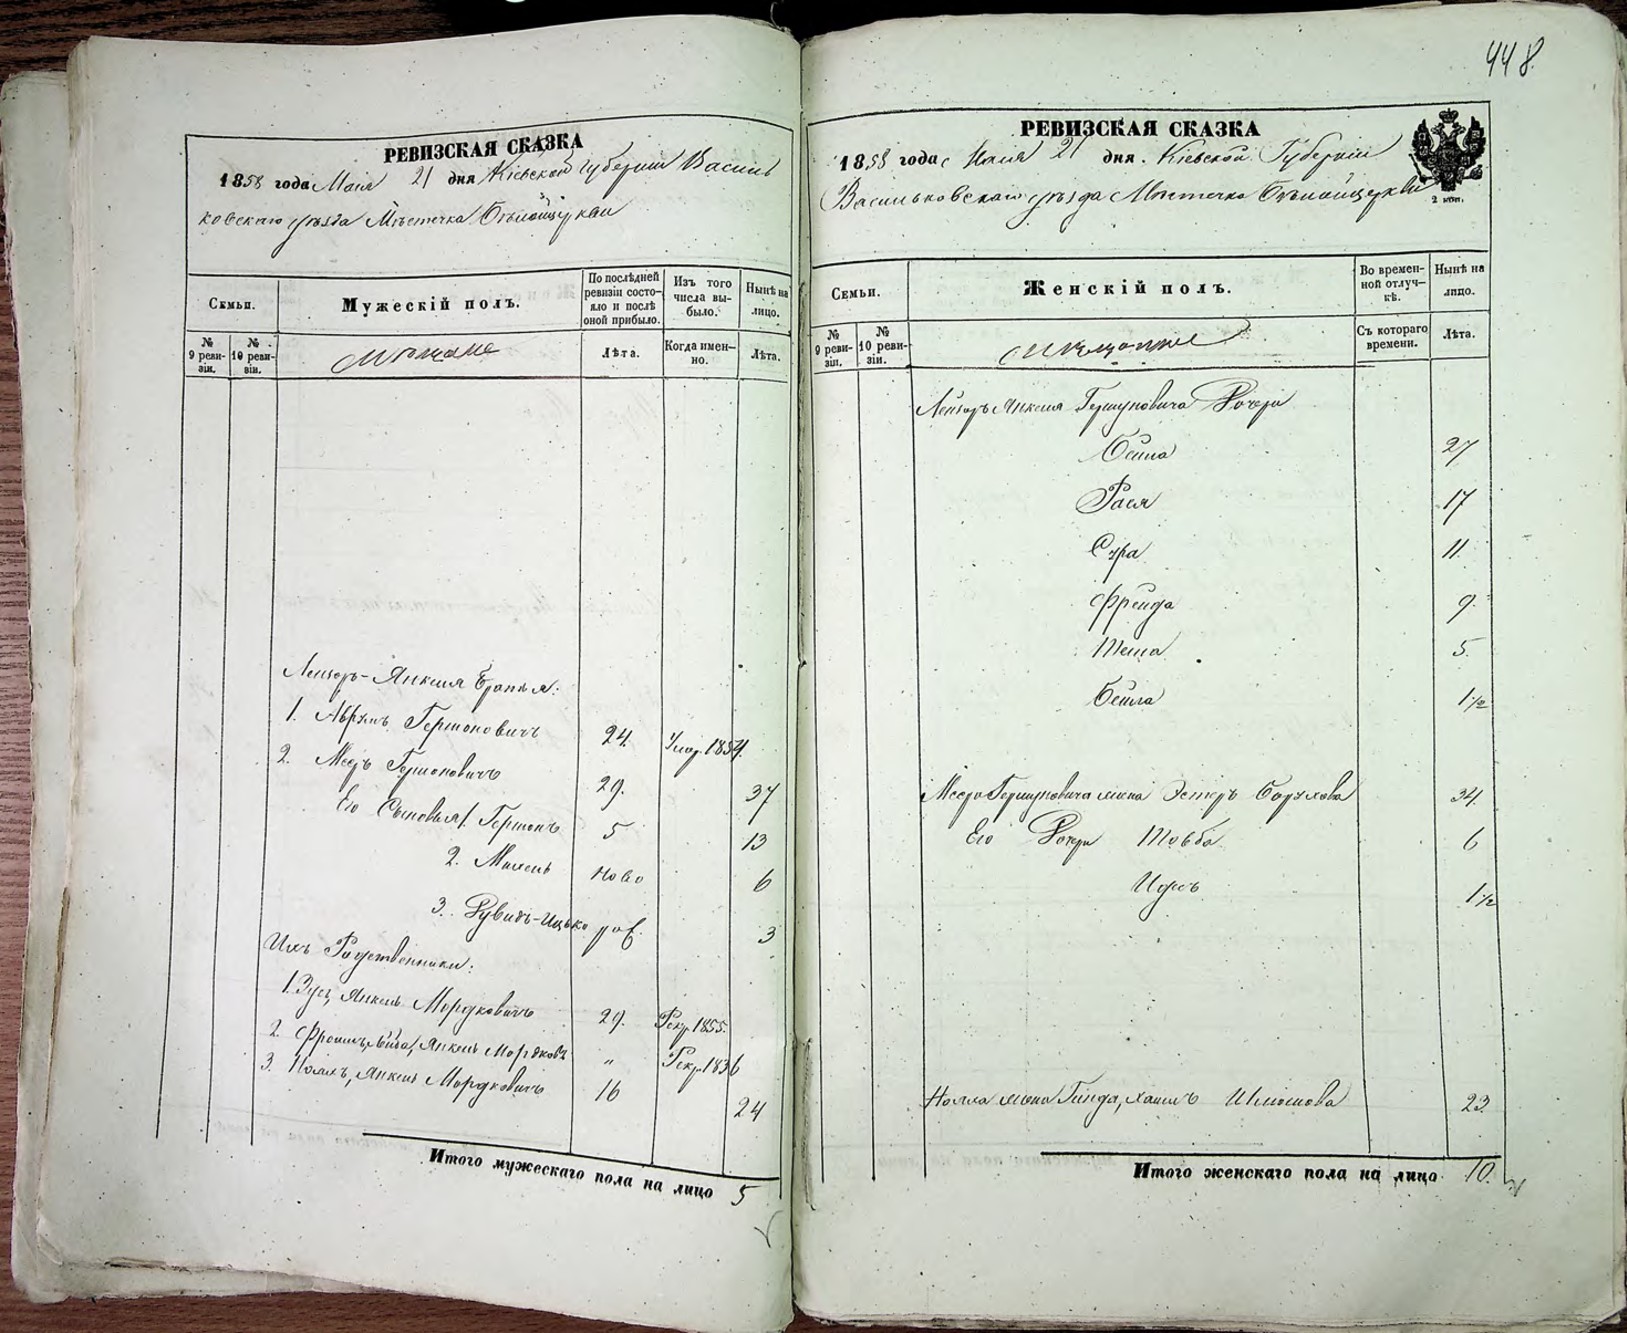 448
РЕВИЗСКАЯ СКАЗКА
1858 года Маія 21 дня Кіевской Губерніи Василь
ковскаго уѣзда Мѣстечка Бѣлойцеркви
Семьи.
Мужескій полъ.
По послѣдней ревизіи состояло и послѣ оной прибыло.
Изъ того числа выбыло.
Нынѣ на лицо.
№ 9 ревизіи.
№ 10 ревизіи.
Мѣщане
Лѣта.
Когда именно.
Лѣта.
Лейзоръ-Янкеля Братья:
1. Аврумъ Гершоновичъ 24. Умер. 1854.
2. Мееръ Гершоновичъ 29. 37
Его Сыновья 1. Гершонъ 5 13
2. Михель ново 6
3. Дувидъ-Ицько рож. 3
Ихъ Родственники:
1. Зусь, Янкель Мордковичъ 29. Рекр. 1855.
2. Фроимъ, Янкель Мордков. " Рекр. 1836
3. Янкель Мордковичъ 16 24
Итого мужескаго пола на лицо 5
РЕВИЗСКАЯ СКАЗКА
1858 года Маія 21 дня. Кіевской Губерніи
Васильковскаго уѣзда Мѣстечка Бѣлойцеркви
2 коп.
Семьи.
Женскій полъ.
Во временной отлучкѣ.
Нынѣ на лицо.
№ 9 ревизіи.
№ 10 ревизіи.
Мѣщанки
Съ котораго времени.
Лѣта.
Лейзоръ Янкеля Гершуновича Дочери
Бейла 27
Рася 17
Сура 11.
Фрейда 9.
5.
Бейла 1 1/2
Меера Гершуновича жена Эстеръ Борухова 34.
Его Дочери Товба 6
1 1/2
жена Гинда, Шліомова 23.
Итого женскаго пола на лицо 10.